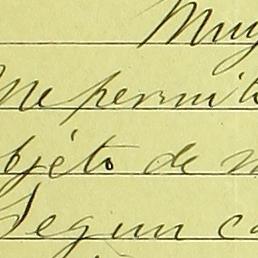 Muy
Me permito
objéto de
Segun